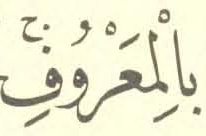 بِالْمَعْرُوفِۚ